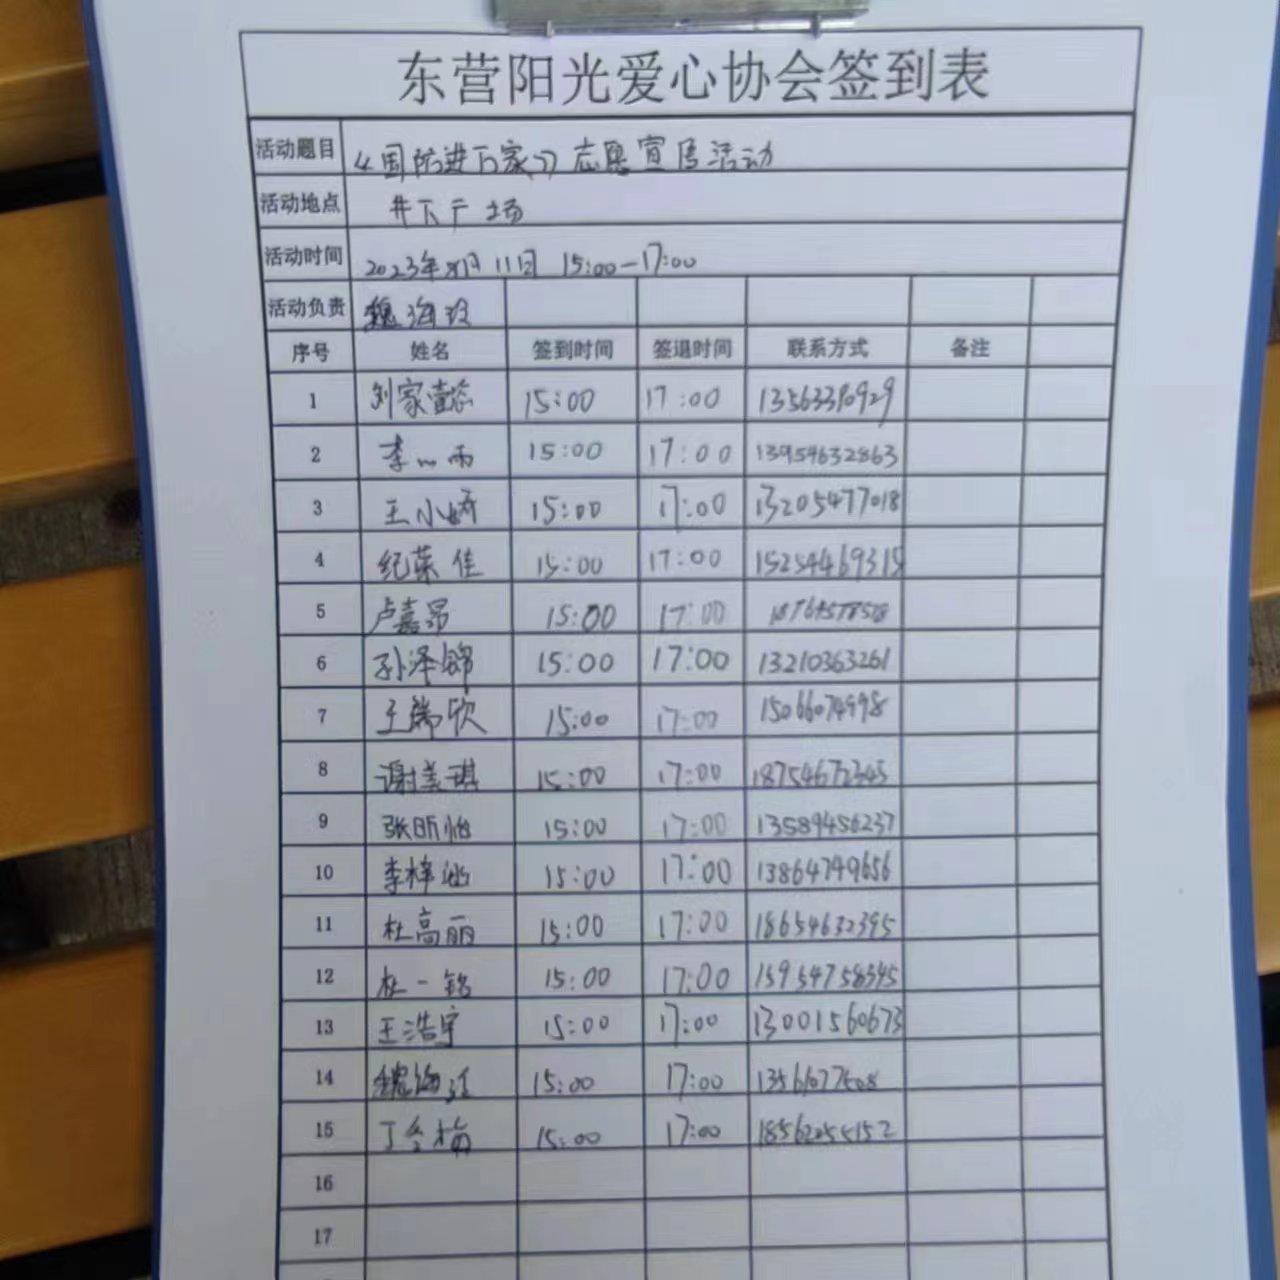 东营阳光爱心协会签到表
活动题目 《国防进万家》志愿宣传活动
活动地点 井下广场
活动时间 2023年 11日 15:00-17:00
活动负责 魏海
序号 姓名 签到时间 签退时间 联系方式 备注
1 刘家 15:00 17:00
2 李 雨 15:00 17:00 13954632863
3 王小娇 15:00 17:00 13205477018
4 纪荣佳 15:00 17:00 15254469315
5 卢嘉昂 15:00 17:00
6 孙泽锦 15:00 17:00 13210363261
7 王瑞欣 15:00 17:00 15066074998
8 谢美琪 15:00 17:00 18754672343
9 张昕怡 15:00 17:00 13589456237
10 李梓涵 15:00 17:00 13864749656
11 杜高丽 15:00 17:00 18654632395
12 杜一铭 15:00 17:00 15954758345
13 王浩宇 15:00 17:00 13001560673
14 魏海 15:00 17:00
15 丁 梅 15:00 17:00
16
17